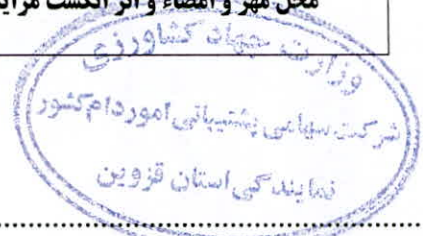 محل مهر و امضاء و اثر انگشت مزای
وزارت جهاد کشاورزی
شرکت سهامی پشتیبانی امور دام کشور
نمایندگی استان قزوین